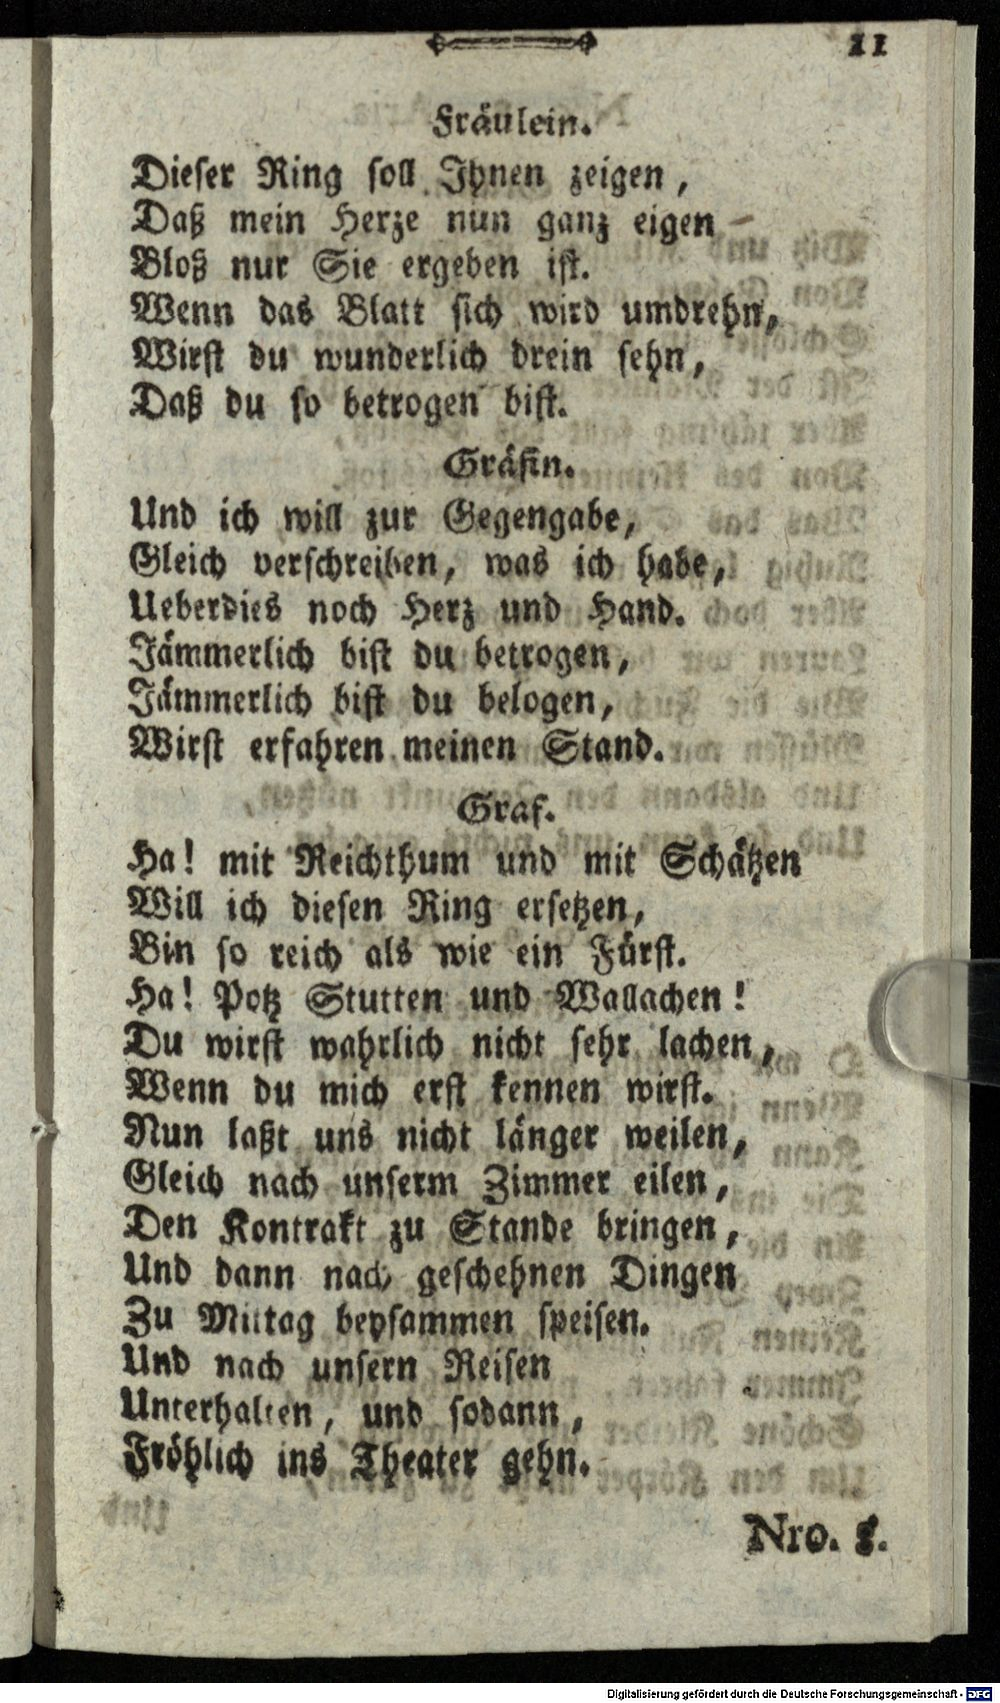 11
Fräulein.
Dieser Ring soll Ihnen zeigen,
Daß mein Herze nun ganz eigen
Bloß nur Sie ergeben ist.
Wenn das Blatt sich wird umdrehn,
Wirst du wunderlich drein sehn,
Daß du so betrogen bist.
Gräfin.
Und ich will zur Gegengabe,
Gleich verschreiben, was ich habe,
Ueberdies noch Herz und Hand.
Jämmerlich bist du betrogen,
Jämmerlich bist du belogen,
Wirst erfahren meinen Stand.
Graf.
Ha! mit Reichthum und mit Schätzen
Will ich diesen Ring ersetzen,
Bin so reich als wie ein Fürst.
Ha! Potz Stutten und Wallachen!
Du wirst wahrlich nicht sehr lachen,
Wenn du mich erst kennen wirst.
Nun laßt uns nicht länger weilen,
Gleich nach unserm Zimmer eilen,
Den Kontrakt zu Stande bringen,
Und dann nach geschehnen Dingen
Zu Mittag beysammen speisen.
Und nach unsern Reisen
Unterhalten, und sodann,
Fröhlich ins Theater gehn.
Nro. 8.
Digitalisierung gefördert durch die Deutsche Forschungsgemeinschaft - DFG